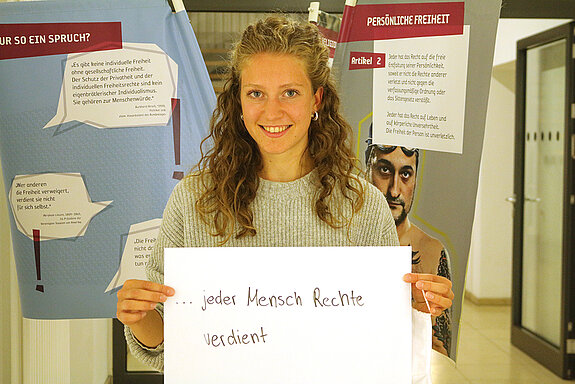 UR SO EIN SPRUCH?
„Es gibt keine individuelle Freiheit
ohne gesellschaftliche Freiheit.
Der Schutz der Privatheit und der
individuellen Freiheitsrechte sind kein
eigenbrötlerischer Individualismus.
Sie gehören zur Menschenwürde."
„Wer anderen
die Freiheit verweigert,
verdient sie nicht
für sich selbst."
Abraham Lincoln, 1809-1865,
16. Präsident der
Vereinigten Staaten von
„Die
nicht
PERSÖNLICHE FREIHEIT
Artikel 2
Jeder hat das Recht auf die freie
Entfaltung seiner Persönlichkeit,
soweit er nicht die Rechte anderer
verletzt und nicht gegen die
verfassungsmäßige Ordnung oder
das Sittengesetz verstößt.
Jeder hat das Recht auf Leben und
auf körperliche Unversehrtheit.
Die Freiheit der Person ist unverletzlich.
... jeder Mensch Rechte
verdient